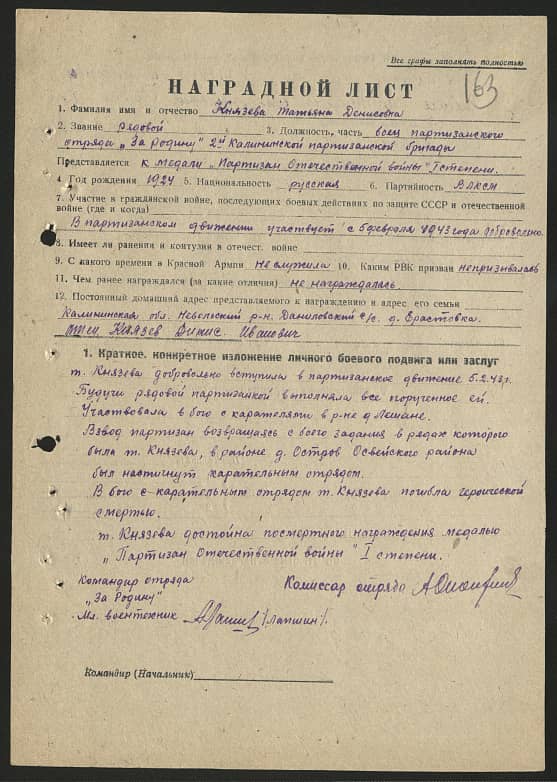 Все графы заполнять полностью
163
НАГРАДНОЙ ЛИСТ
1. Фамилия имя и отчество Князева Татьяна Денисовна
2. Звание рядовой 3. Должность, часть боец партизанского
отряда „За Родину" 2ой Калининской партизанской бригады
Представляется к медали „Партизан Отечественной войны" I степени.
4. Год рождения 1924 5. Национальность русская 6. Партийность ВЛКСМ
7. Участие в гражданской войне, последующих боевых действиях по защите СССР и отечественной
войне (где и когда)
В партизанском движении участвует с 5 февраля 1943 года добровольно.
8. Имеет ли ранения и контузии в отечест. войне
9. С какого времени в Красной Армии не служила 10. Каким РВК призван непризывалась
11. Чем ранее награждался (за какие отличия) не награждалась
12. Постоянный домашний адрес представляемого к награждению и адрес его семьи
Калининская обл. Невельский р-н. Даниловский с/с. д. Ерастовка.
отец Князев Динис. Иванович
1. Краткое, конкретное изложение личного боевого подвига или заслуг
т. Князева добровольно вступила в партизанское движение 5.2.43г.
Будучи рядовой партизанкой выполняла все порученное ей.
Участвовала в бою с карателями в р-не д. Лешане.
Взвод партизан возвращаясь с боего задания в рядах которого
была т. Князева, в районе д. Остров Освейского района
был настигнут карательным отрядом.
В бою с карательным отрядом т. Князева погибла героической
смертью.
т. Князева достойна посмертного награждения медалью
„Партизан Отечественной войны" I степени.
Командир отряда Комиссар отряда
„За Родину"
Мл. воентехник /Лапшин/.
Командир (Начальник)